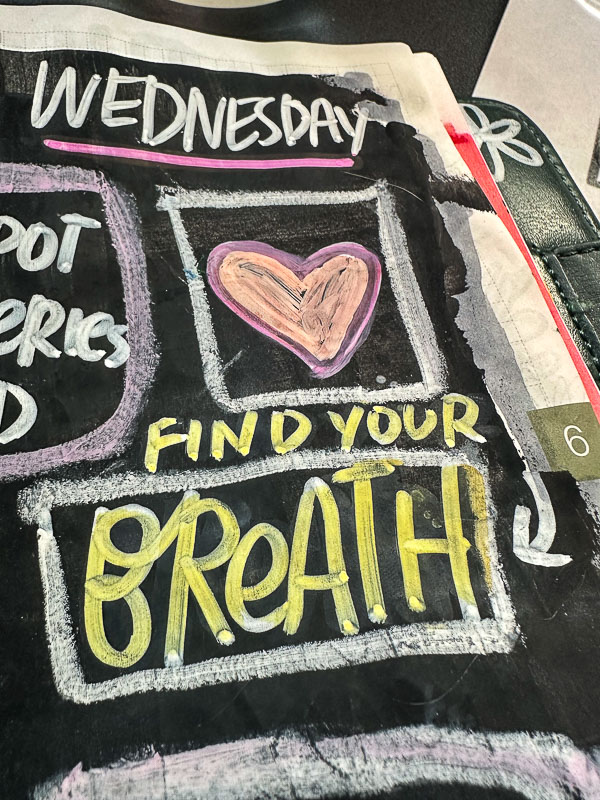 WEDNESDAY
POT
eRIes
D
FIND YOUR
BReATH
6